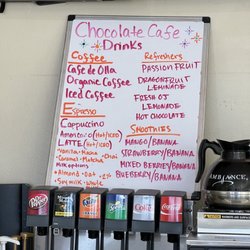 Chocolate Cafe
Drinks
Coffee
Cafe de Olla
Organic Coffee
Iced Coffee
Espresso
Cappuccino
Americano (Hot/Iced)
Latte (Hot/Iced)
•Vanilla •Mocha
•Caramel •Matcha •Chai
Milk options
•Almond •Oat •2%
•Soy milk •Whole
Refreshers
Passion Fruit
Dragonfruit
Lemonade
Fresh OJ
Lemonade
Hot Chocolate
Smoothies
Mango/Banana
Strawberry/Banana
Mixed Berries/Banana
Blueberry/Banana
AMBIANCE
Coke
Coca-Cola